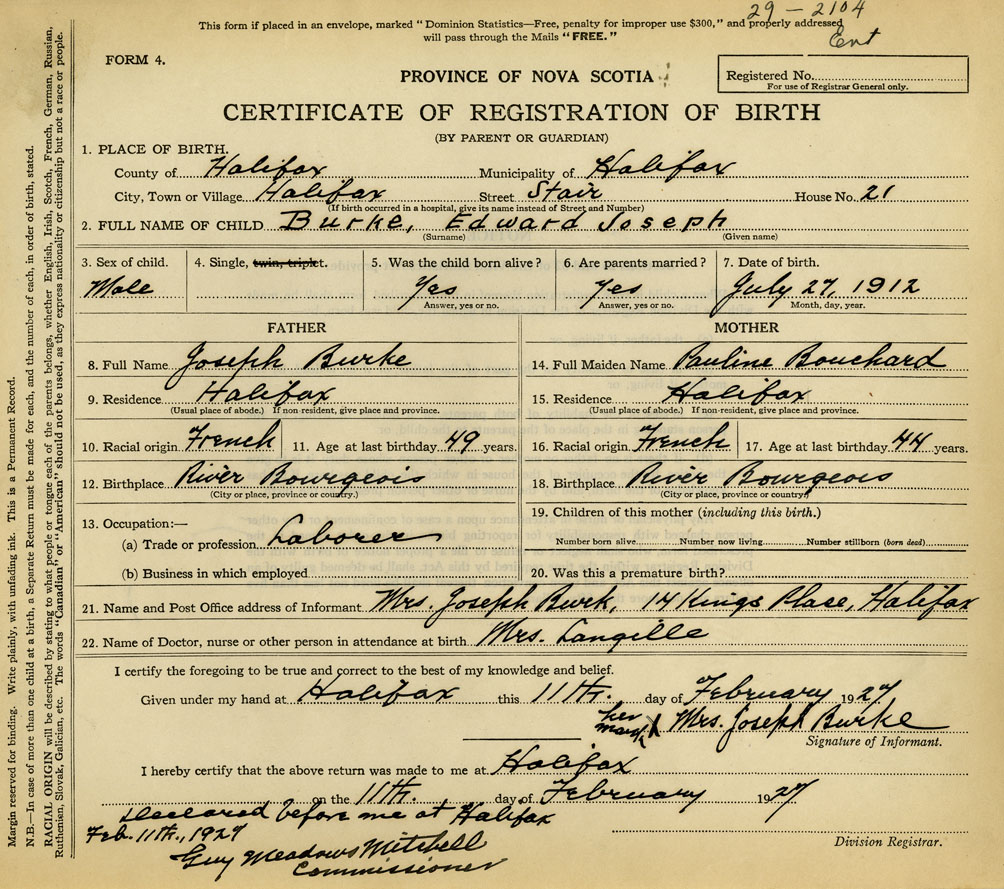 29 – 2104
This form if placed in an envelope, marked “Dominion Statistics—Free, penalty for improper use $300,” and properly addressed
will pass through the Mails “FREE.”
Ent
FORM 4.
PROVINCE OF NOVA SCOTIA
Registered No.
For use of Registrar General only.
CERTIFICATE OF REGISTRATION OF BIRTH
(BY PARENT OR GUARDIAN)
1. PLACE OF BIRTH.
County of Halifax Municipality of Halifax
City, Town or Village Halifax Street Stair House No. 21
(If birth occurred in a hospital, give its name instead of Street and Number)
2. FULL NAME OF CHILD Burke, Edward Joseph
(Surname) (Given name)
3. Sex of child. 4. Single, twin, triplet. 5. Was the child born alive? 6. Are parents married? 7. Date of birth.
Male Yes Yes July 27, 1912
Answer, yes or no. Answer, yes or no. Month, day, year.
FATHER MOTHER
8. Full Name Joseph Burke 14. Full Maiden Name Pauline Bouchard
9. Residence Halifax 15. Residence Halifax
(Usual place of abode.) If non-resident, give place and province. (Usual place of abode.) If non-resident, give place and province.
10. Racial origin French 11. Age at last birthday 49 years. 16. Racial origin French 17. Age at last birthday 44 years.
12. Birthplace River Bourgeois 18. Birthplace River Bourgeois
(City or place, province or country.) (City or place, province or country)
13. Occupation:— 19. Children of this mother (including this birth.)
(a) Trade or profession Laborer
Number born alive Number now living Number stillborn (born dead)
(b) Business in which employed 20. Was this a premature birth?
21. Name and Post Office address of Informant Mrs. Joseph Burk, 14 Kings Place, Halifax
22. Name of Doctor, nurse or other person in attendance at birth Mrs. Langille
I certify the foregoing to be true and correct to the best of my knowledge and belief.
Given under my hand at Halifax this 11th. day of February 1927
her mark X Mrs. Joseph Burke
Signature of Informant.
I hereby certify that the above return was made to me at Halifax
on the 11th. day of February 1927
Declared before me at Halifax
Feb. 11th., 1927
Guy Meadows Mitchell
Commissioner
Division Registrar.
Margin reserved for binding. Write plainly, with unfading ink. This is a Permanent Record.
N.B.—In case of more than one child at a birth, a Separate Return must be made for each, and the number of each, in order of birth, stated.
RACIAL ORIGIN will be described by stating to what people or tongue each of the parents belongs, whether English, Irish, Scotch, French, German, Russian,
Ruthenian, Slovak, Galician, etc. The words “Canadian” or “American” should not be used, as they express nationality or citizenship but not a race or people.